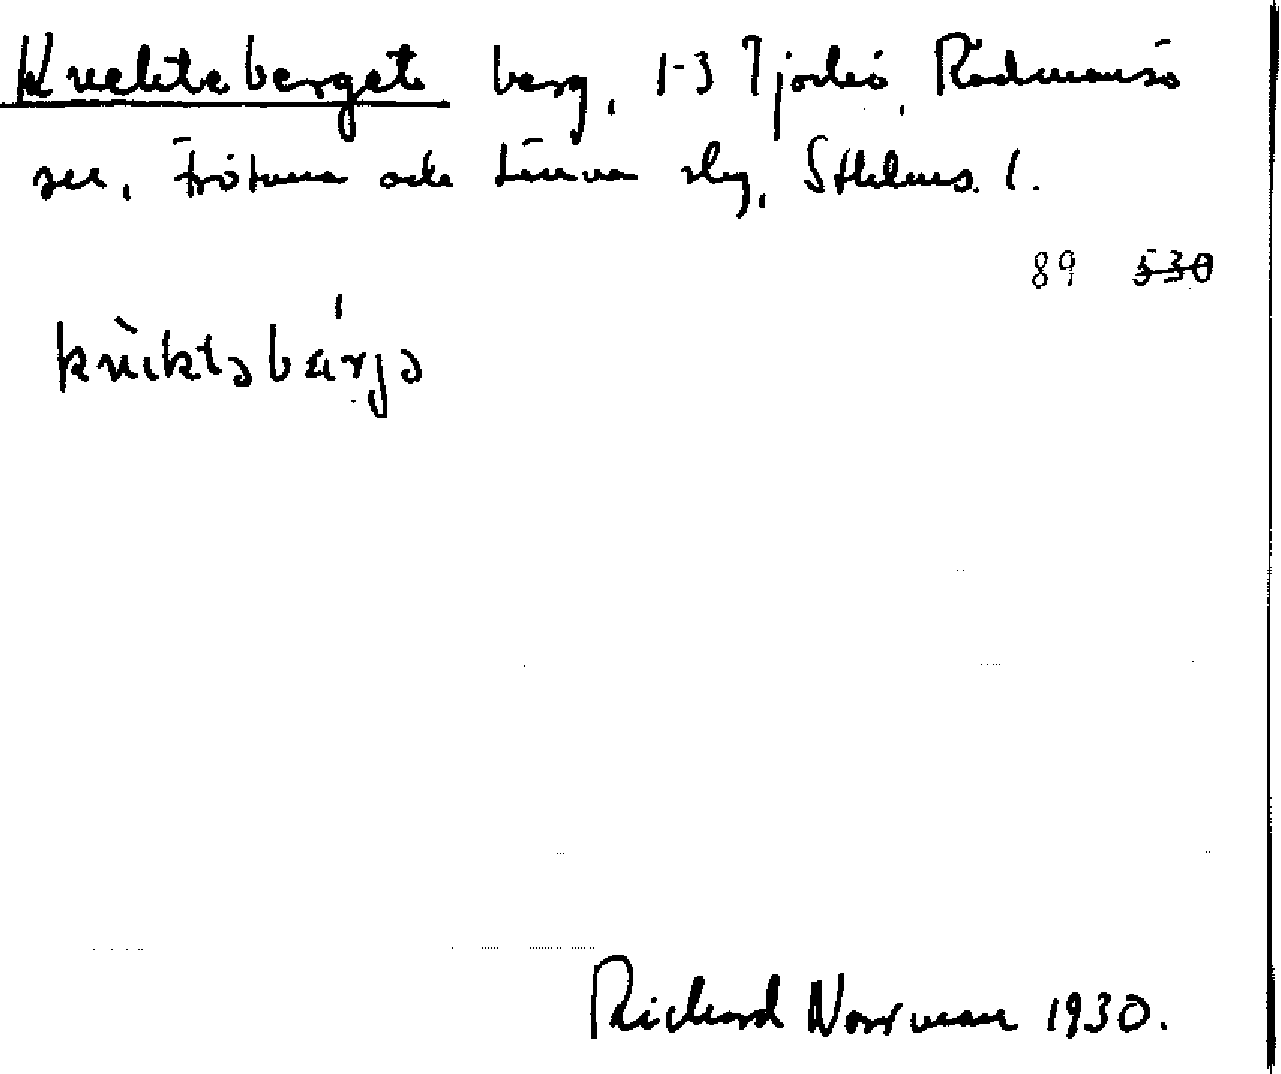 Knektaberget berg, 1-3 Tjockö, Rådmansö
sn, Frötuna och Länna slg, Sthlms l.
89 530
Richard Norrman 1930.